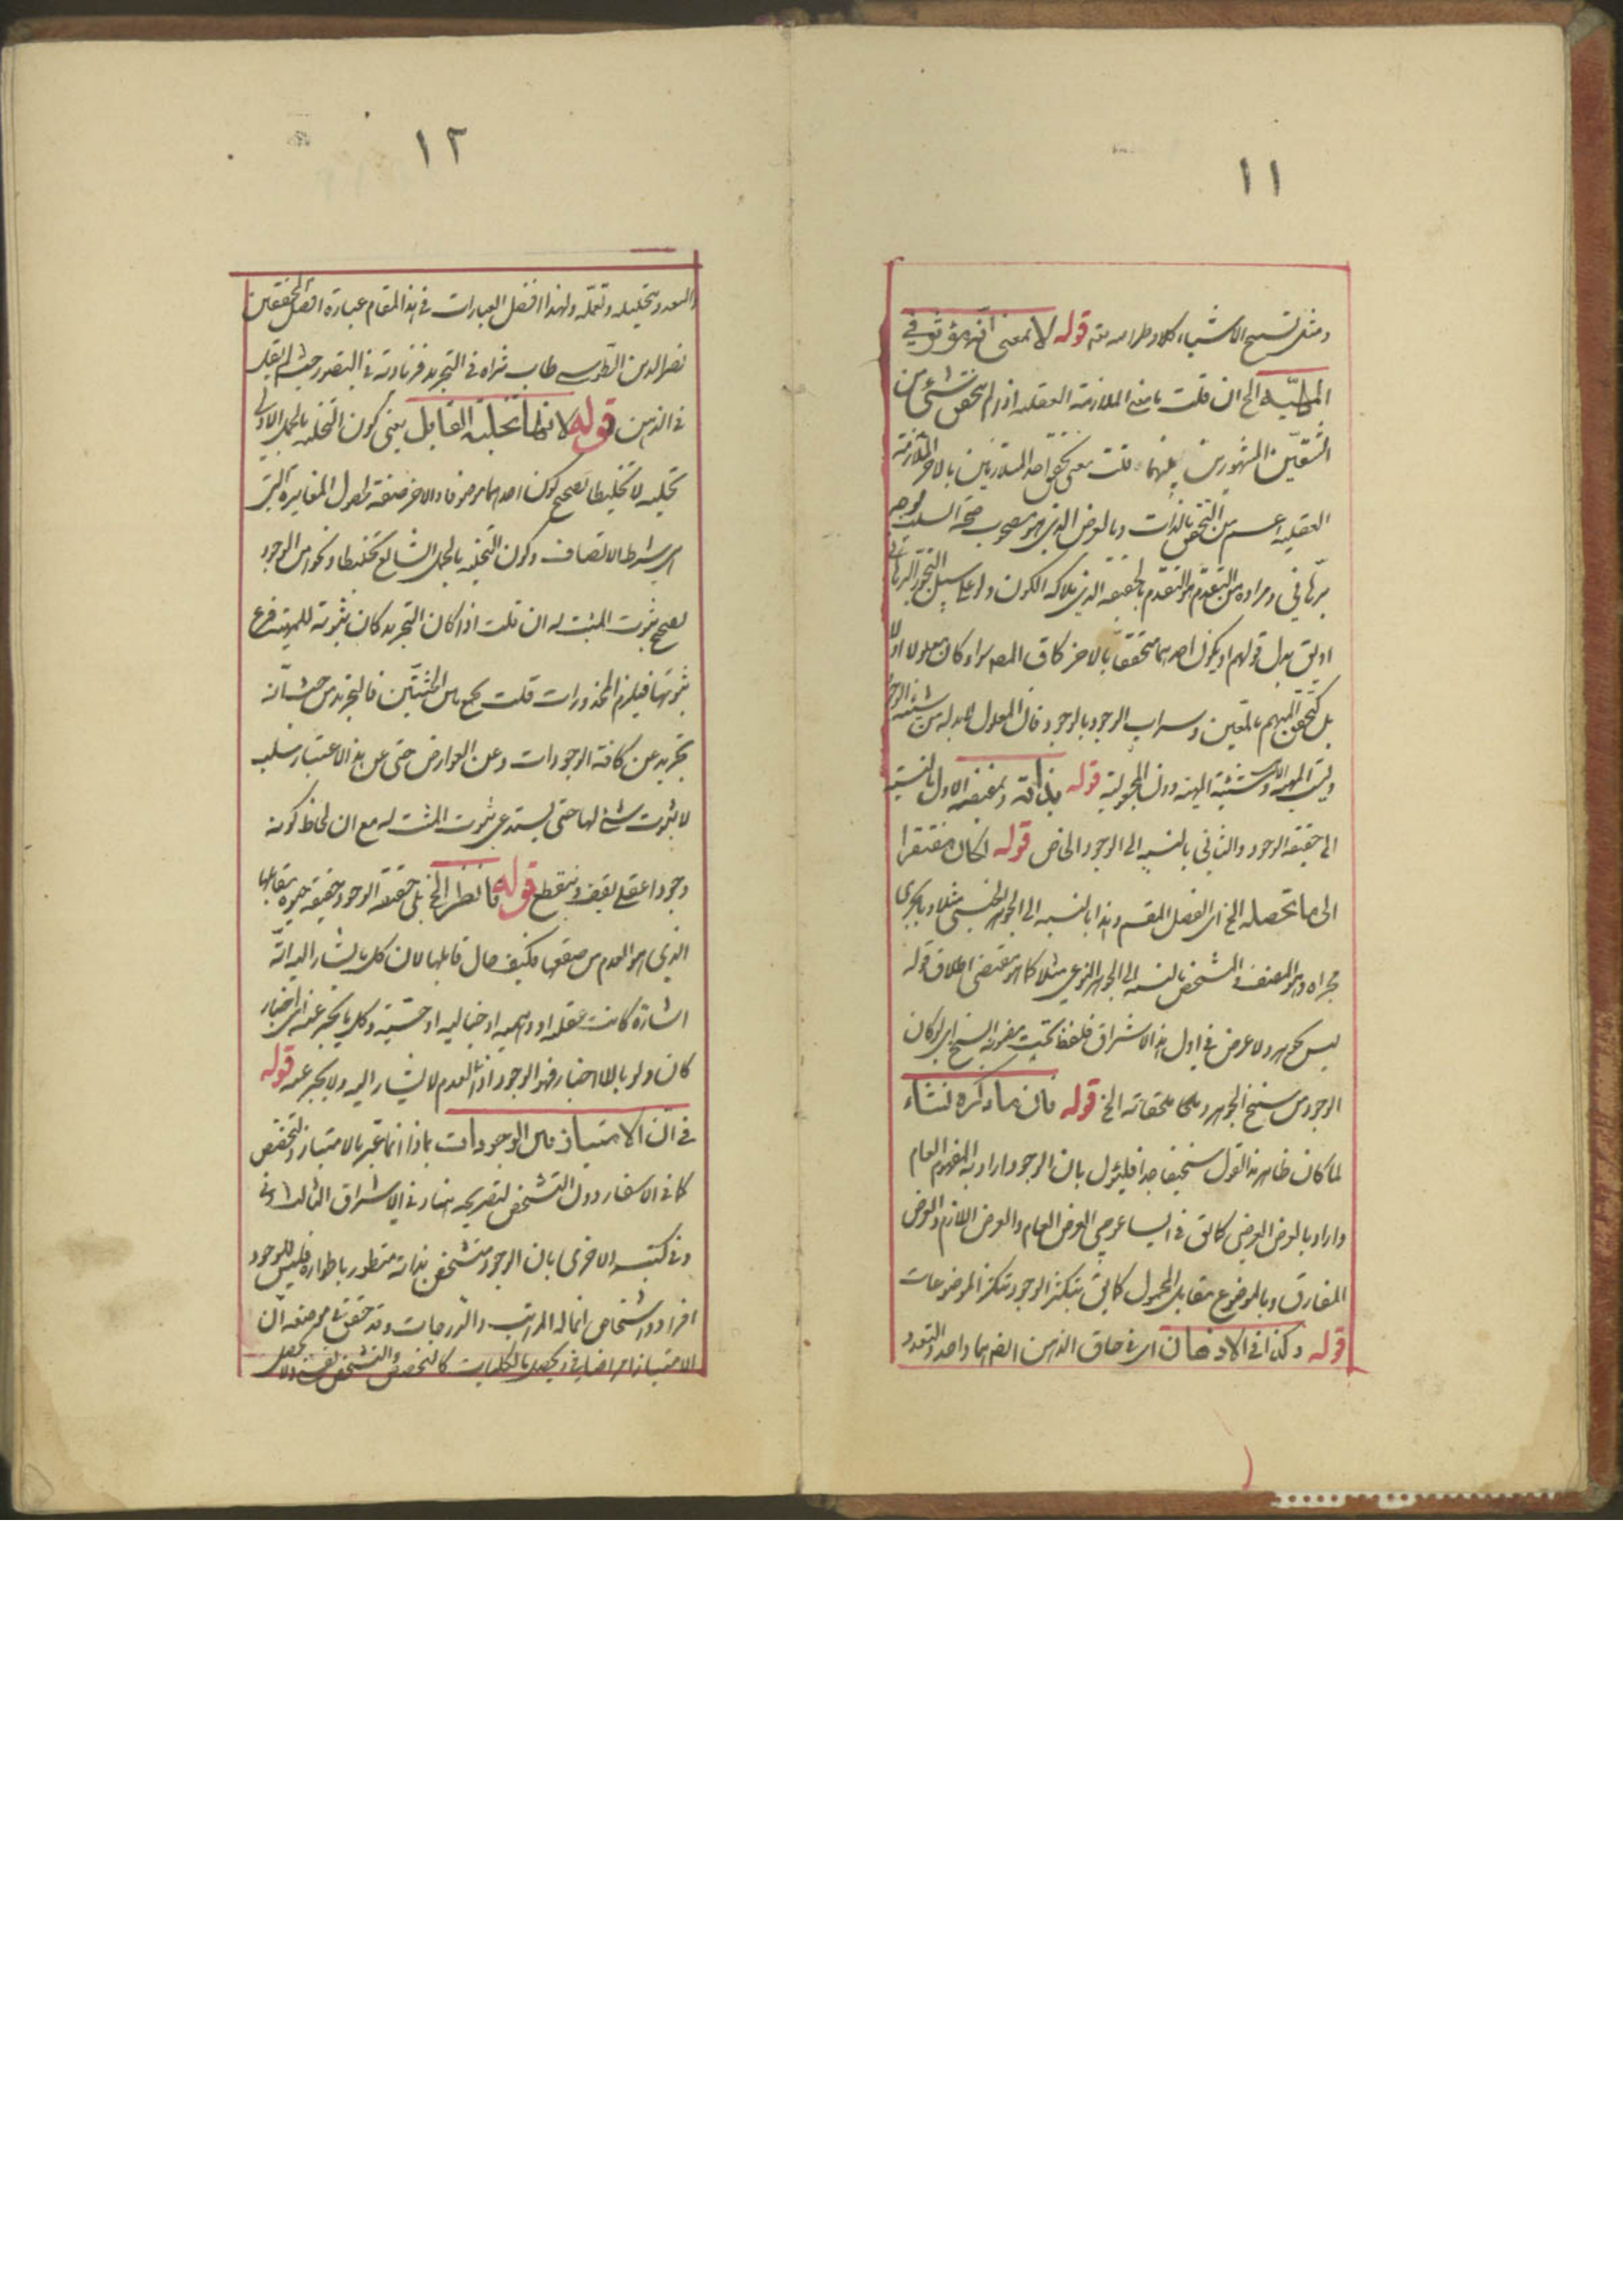 ١١
ومثل تسبيح الاشياء كلا وطرا له تع قوله لا بمعنى انه مؤثر في
المهيّة الخ ان قلت ما معنى الملازمة العقلية اذ لم يتحقق شئ من
الشقين المشهورين بينهما قلت معنى تحقق احد المتلازمين بالاخر الملازمة
العقلية اعم من التحقق بالذات وبالعرض الذى هو مصحوب صحة السلب بوجه
برهاني ومراده من التقدم هو التقدم بالحقيقة الذى ملاكه الكون ولو على سبيل التجوز البرهاني
او يق بدل قولهم او يكون احدهما متحققا بالاخر كما فى المعه سواء كان معلولا او لا
بل كتحقق المبهم بالمتعين وسراب الوجود بالوجود فان المعلول لابد له من شيئية الوجود
وليت المهية الا شيئية المهية دون المجعولية قوله بذاته ومقتضيه الاول بالنسبة
الى حقيقة الوجود والثاني بالنسبة الى الوجود الخاص قوله لكان مفتقرا
الى ما يحصله الخ اى الفصل المقسم وهذا بالنسبة الى الجوهر الجنسى مثلا وما يجرى
مجراه وهو المصنف والمشخص بالنسبة الى الجوهر النوعي مثلا كما هو مقتضى اطلاق قوله
ليس بجوهر ولا عرض فى اول هذا الاشراق فلفظة تحت بمعونة النسخ اى لو كان
الوجود من سنخ الجوهر وملحقاته الخ قوله فان ما ذكره نشاء
لما كان ظاهر هذا القول سخيفا جدا فليئول بان الوجود اراد به المفهوم العام
واراد بالعرض العرضي كما يق فى ايساغوجي العرض العام والعرض اللازم والعرض
المفارق وبالموضوع مقابل المحمول كما يق يتكثر الوجود بتكثر الموضوعات
قوله وكذا فى الاذهان اى فى حاق الذهن ايضا هما واحد والتعدد
١٢
والبعد وبتحليله وتعمله ولهذا افضل العبارات فى هذا المقام عبارة افضل المحققين
نصير الدين الطوسي طاب ثراه فى التجريد فزيادته فى التصور حيث لم يقل
فى الذهن قوله لانها تخلية القابل يعنى كون التخلية بالحمل الاولى
تخلية لا تخليطا يصحح كون احدهما موصوفا والاخر صفة لحصول المغايرة التى
هى شرط الاتصاف وكون التخلية بالحمل الشايع تخليطا ونحوا من الوجود
يصحح ثبوت المثبت له ان قلت اذا كان التجريد كان ثبوته للمهية فرع
ثبوتها فيلزم المحذورات قلت نجمع بين الحيثيتين فالتجريد من حيث انه
تجريد عن كافة الوجودات وعن العوارض حتى عن هذا الاعتبار سلب
لا ثبوت شئ لها حتى يستدعى ثبوت المثبت له مع ان لحاظ كونه
وجودا عقلي يقف وينقطع قوله فانظر الخ بلى حقيقة الوجود حقيقة مقابلها
الذى هو العدم من صقعها فكيف حال قابلها لان كل ما يشار اليه اية
اشارة كانت عقلية او وهمية او خيالية او حسّية وكل ما يخبر عنه اى اخبار
كان ولو بالا اخبار فهو الوجود اذ العدم لا يشار اليه ولا يخبر عنه قوله
فى ان الامتياز بين الوجودات بماذا انما عبّر بالامتياز والتخصّص
كما فى الاسفار دون التشخص لتصريحه هنا فى الاشراق الثالث وفى
وفى كتبه الاخرى بان الوجود متشخص بذاته متطور باطواره فليس للوجود
افراد واشخاص انما له المراتب والدرجات وقد حقق فى موضعه ان
الامتياز امر اضافى ويحصل بالكليات كالتخصص والتشخص نفسى ولا يحصل